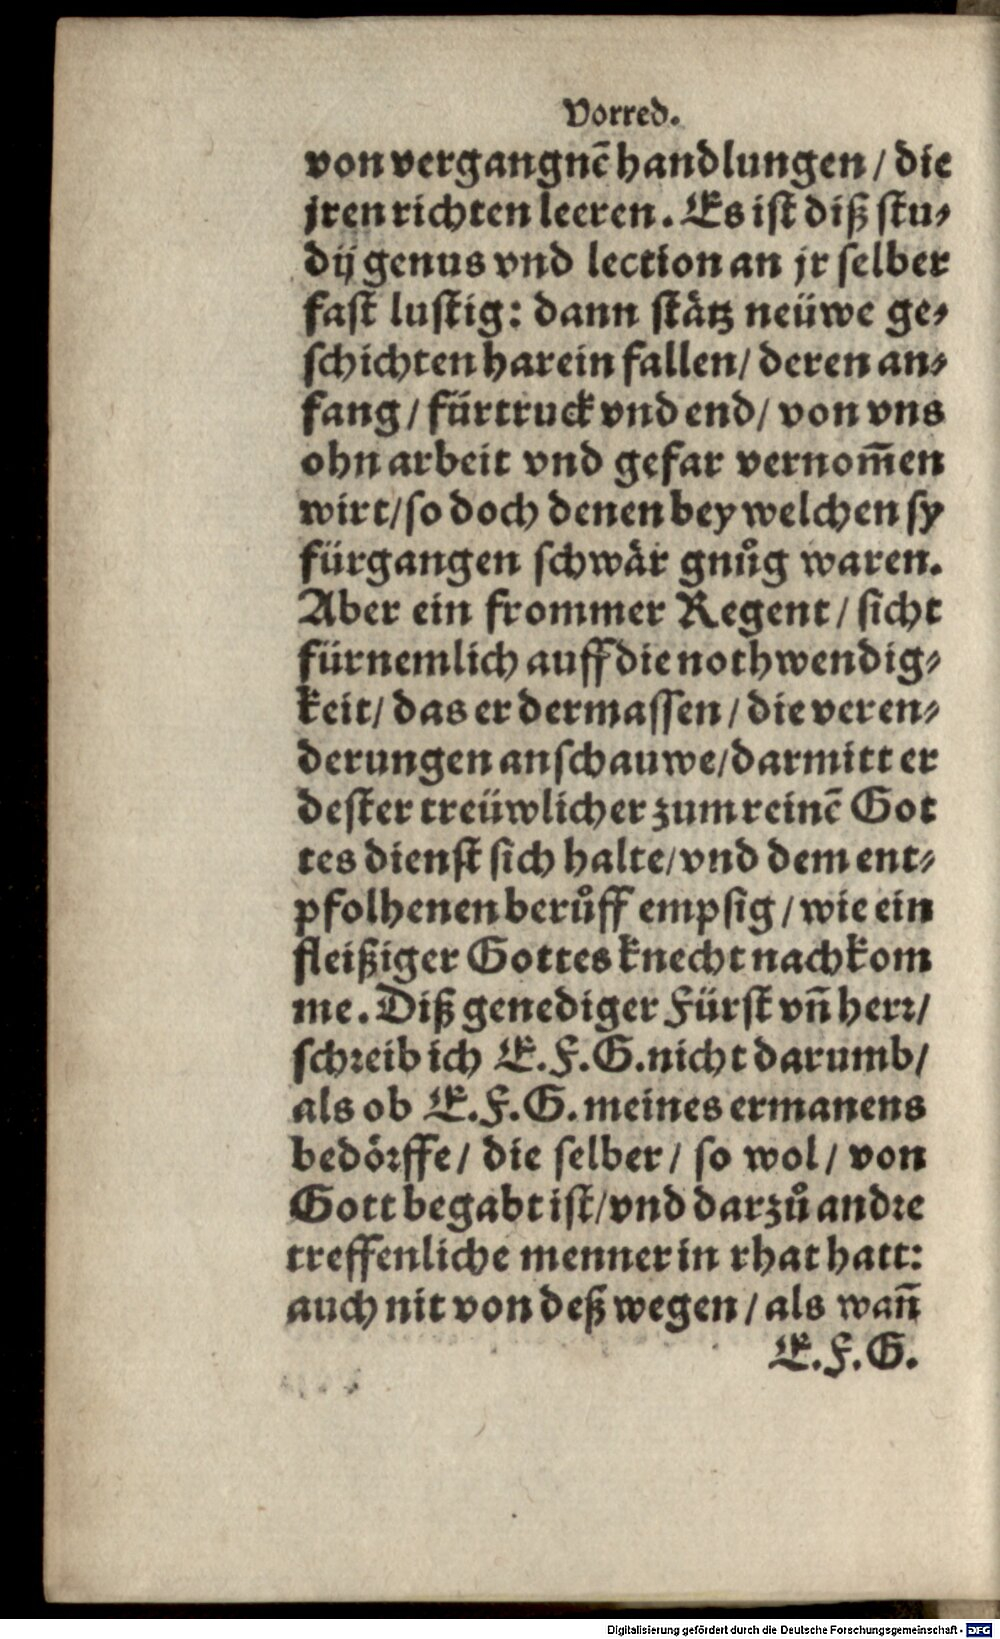 Vorred.
von vergangnē handlungen / die
jren richten leeren. Es ist diß stu-
dij genus vnd lection an jr selber
fast lustig: dann stätz neüwe ge-
schichten harein fallen / deren an-
fang / fürtruck vnd end / von vns
ohn arbeit vnd gefar vernom̄en
wirt / so doch denen bey welchen sy
fürgangen schwär gnůg waren.
Aber ein frommer Regent / sicht
fürnemlich auff die nothwendig-
keit / das er dermassen / die veren-
derungen anschauwe / darmitt er
dester treüwlicher zum reinē Got
tes dienst sich halte / vnd dem ent-
pfolhenen berůff empsig / wie ein
fleißiger Gottes knecht nachkom
me. Diß genediger Fürst vn̄ herr /
schreib ich E.F.G. nicht darumb /
als ob E.F.G. meines ermanens
bedörffe / die selber / so wol / von
Gott begabt ist / vnd darzů andre
treffenliche menner in rhat hatt:
auch nit von deß wegen / als wan̄
E.F.G.
Digitalisierung gefördert durch die Deutsche Forschungsgemeinschaft - DFG